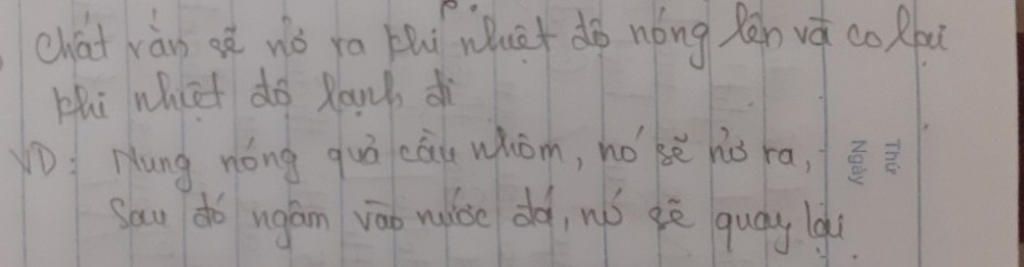 Chất rắn sẽ nở ra khi nhiệt độ nóng lên và co lại
khi nhiệt độ lạnh đi
VD: Nung nóng quả cầu nhôm, nó sẽ nở ra,
Sau đó ngâm vào nước đá, nó sẽ quay lại.
Thứ
Ngày